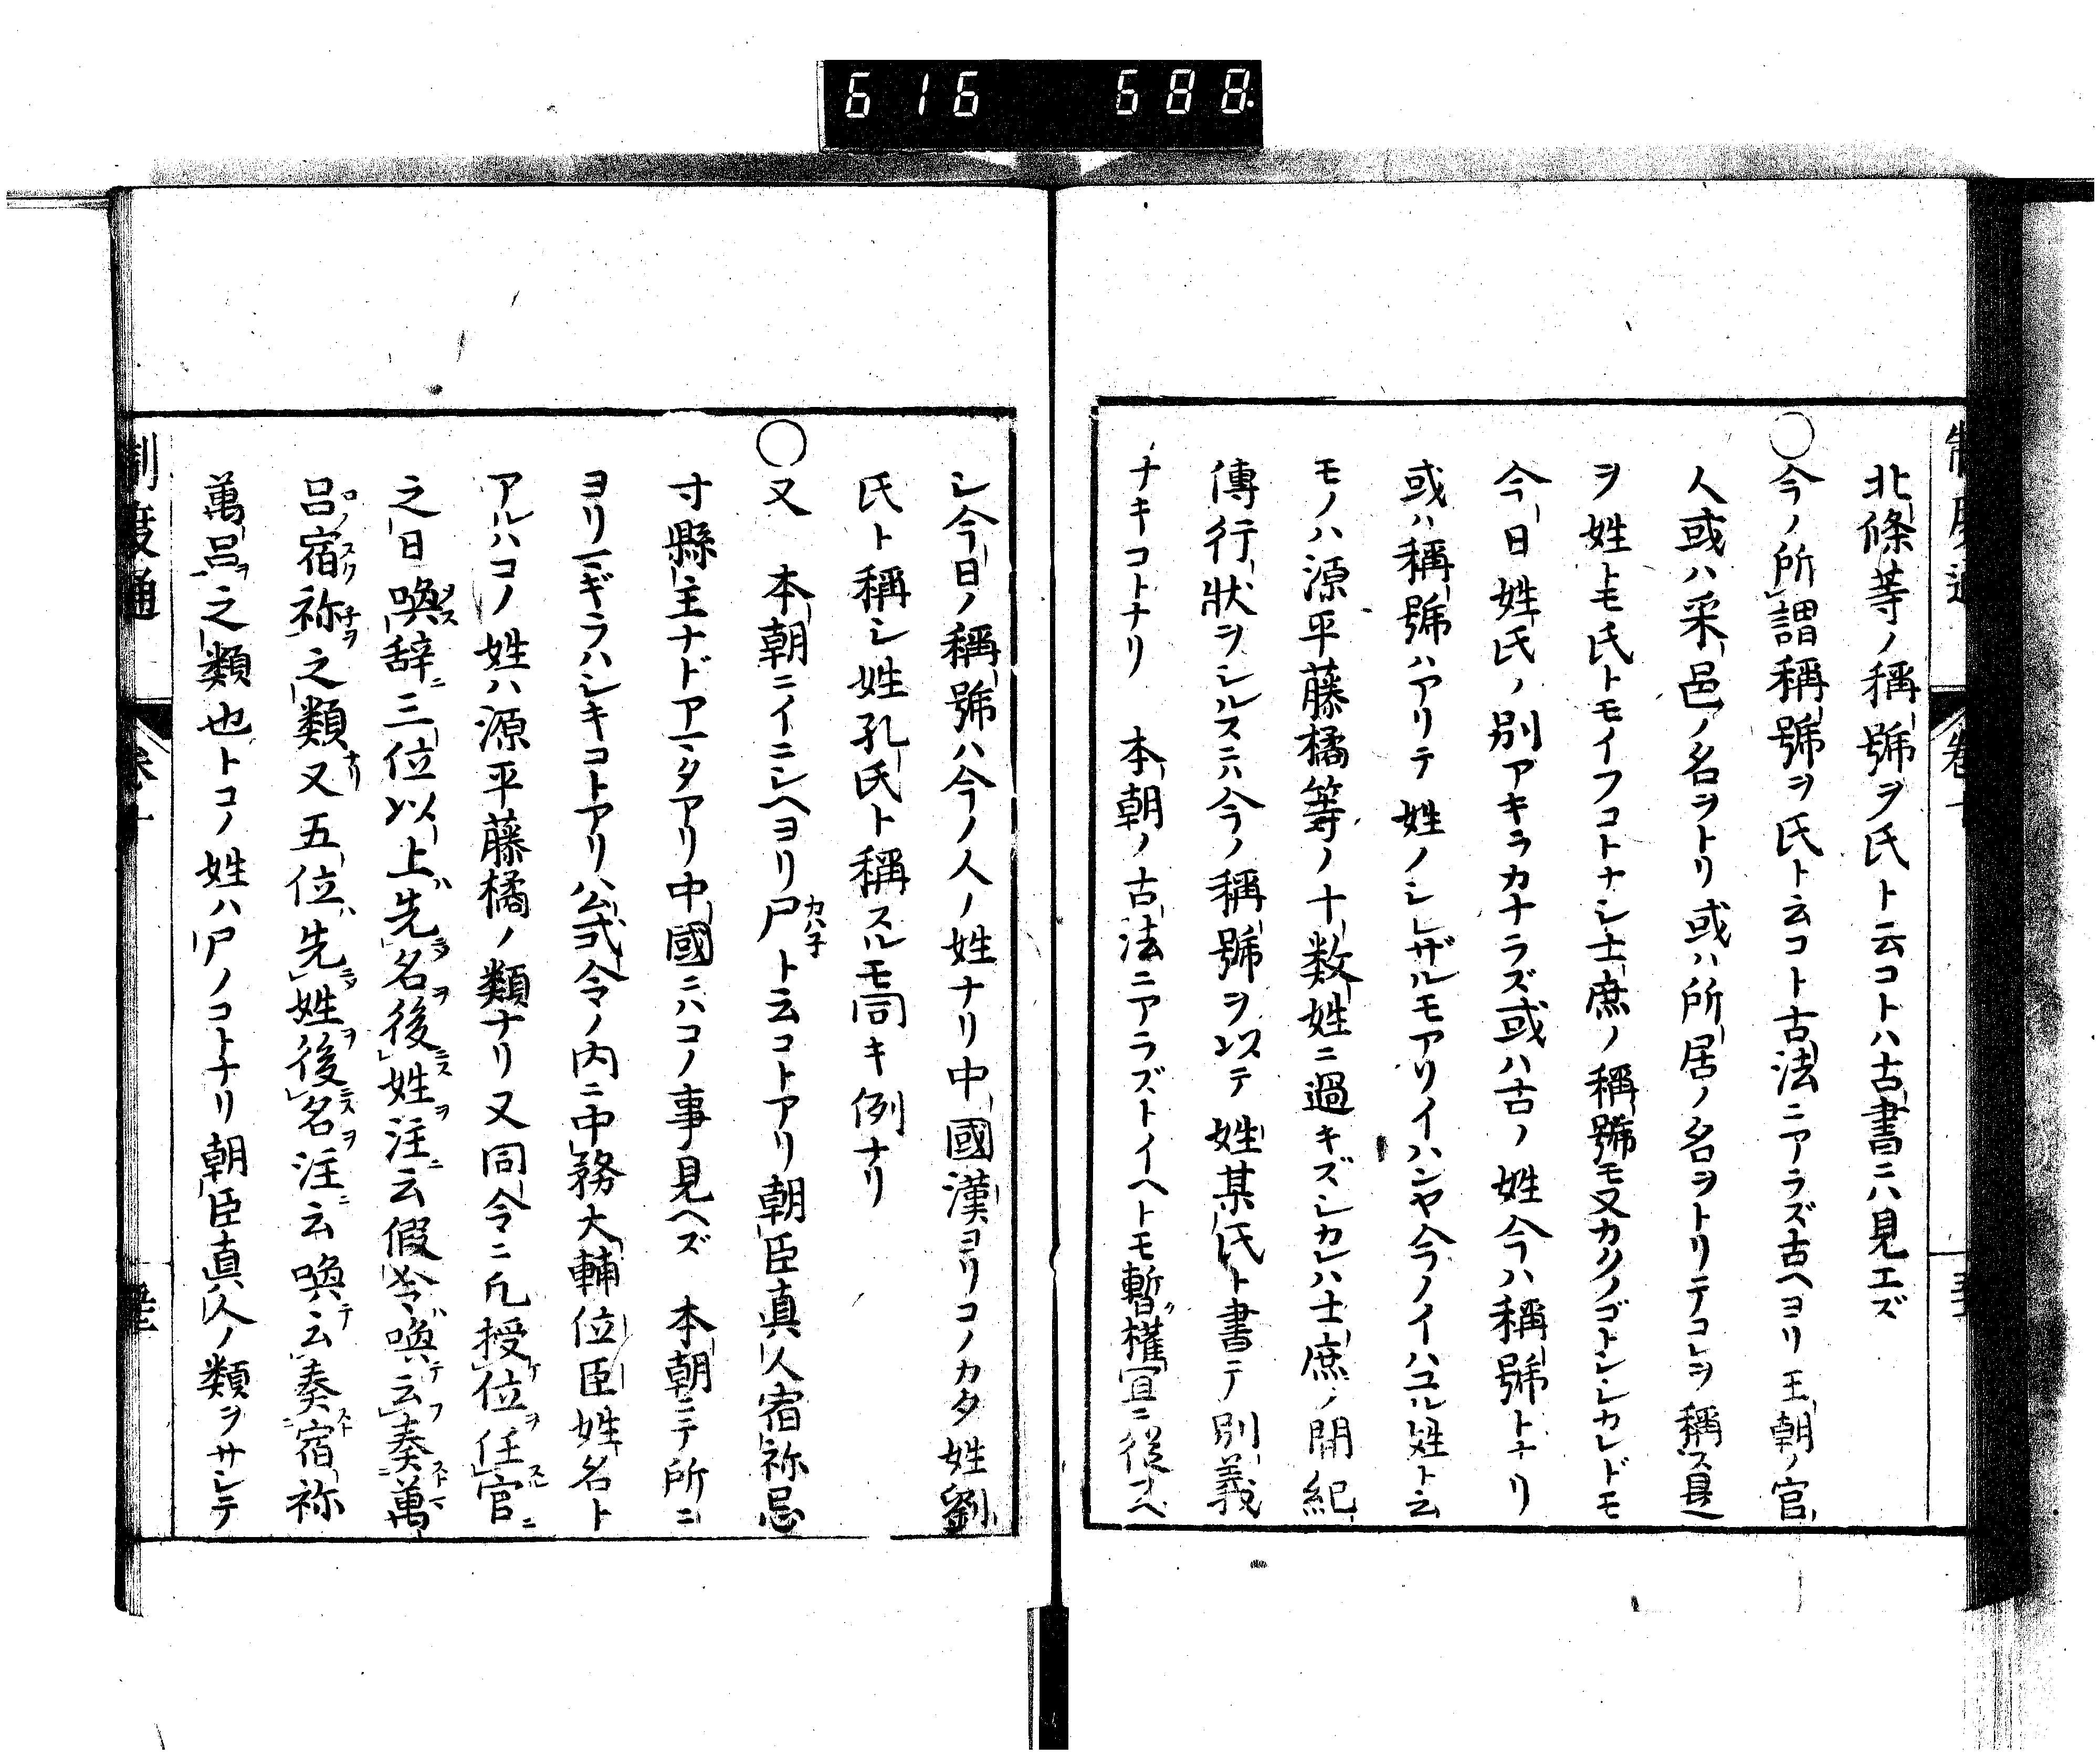 616 688
北條等ノ稱號ヲ氏ト云コトハ古書ニハ見エズ
○今ノ所謂稱號ヲ氏ト云コト古法ニアラズ古ヘヨリ王朝ノ官
人或ハ采邑ノ名ヲトリ或ハ所居ノ名ヲトリテコレヲ稱ス是
ヲ姓トモ氏トモイフコトナシ士庶ノ稱號モ又カクノゴトシシカレドモ
今日姓氏ノ別アキラカナラズ或ハ古ノ姓今ハ稱號トナリ
或ハ稱號ハアリテ姓ノシレザルモアリイハンヤ今ノイハユル姓ト云
モノハ源平藤橘等ノ十数姓ニ過キズシカレハ士庶ノ開紀
傳行狀ヲシルスニハ今ノ稱號ヲ以テ姓某氏ト書テ別義
ナキコトナリ 本朝ノ古法ニアラズトイヘトモ暫ク權宜ニ従フベ
シ今日ノ稱號ハ今ノ人ノ姓ナリ中國漢ヨリコノカタ姓劉
氏ト稱シ姓孔氏ト稱スルモ同キ例ナリ
○又 本朝ニイニシヘヨリ尸ト云コトアリ朝臣真人宿祢忌
寸縣主ナドアマタアリ中國ニハコノ事見ヘズ 本朝ニテ所ニ
ヨリマギラハシキコトアリ公式令ノ内ニ中務大輔位臣姓名ト
アルハコノ姓ハ源平藤橘ノ類ナリ又同令ニ凡授位任官
之日喚辞三位以上先名後姓注云假令喚云奏萬
呂宿祢之類又五位先姓後名注云喚云奏宿祢
萬呂之類也トコノ姓ハ尸ノコトナリ朝臣真人ノ類ヲサシテ
制度通 卷十